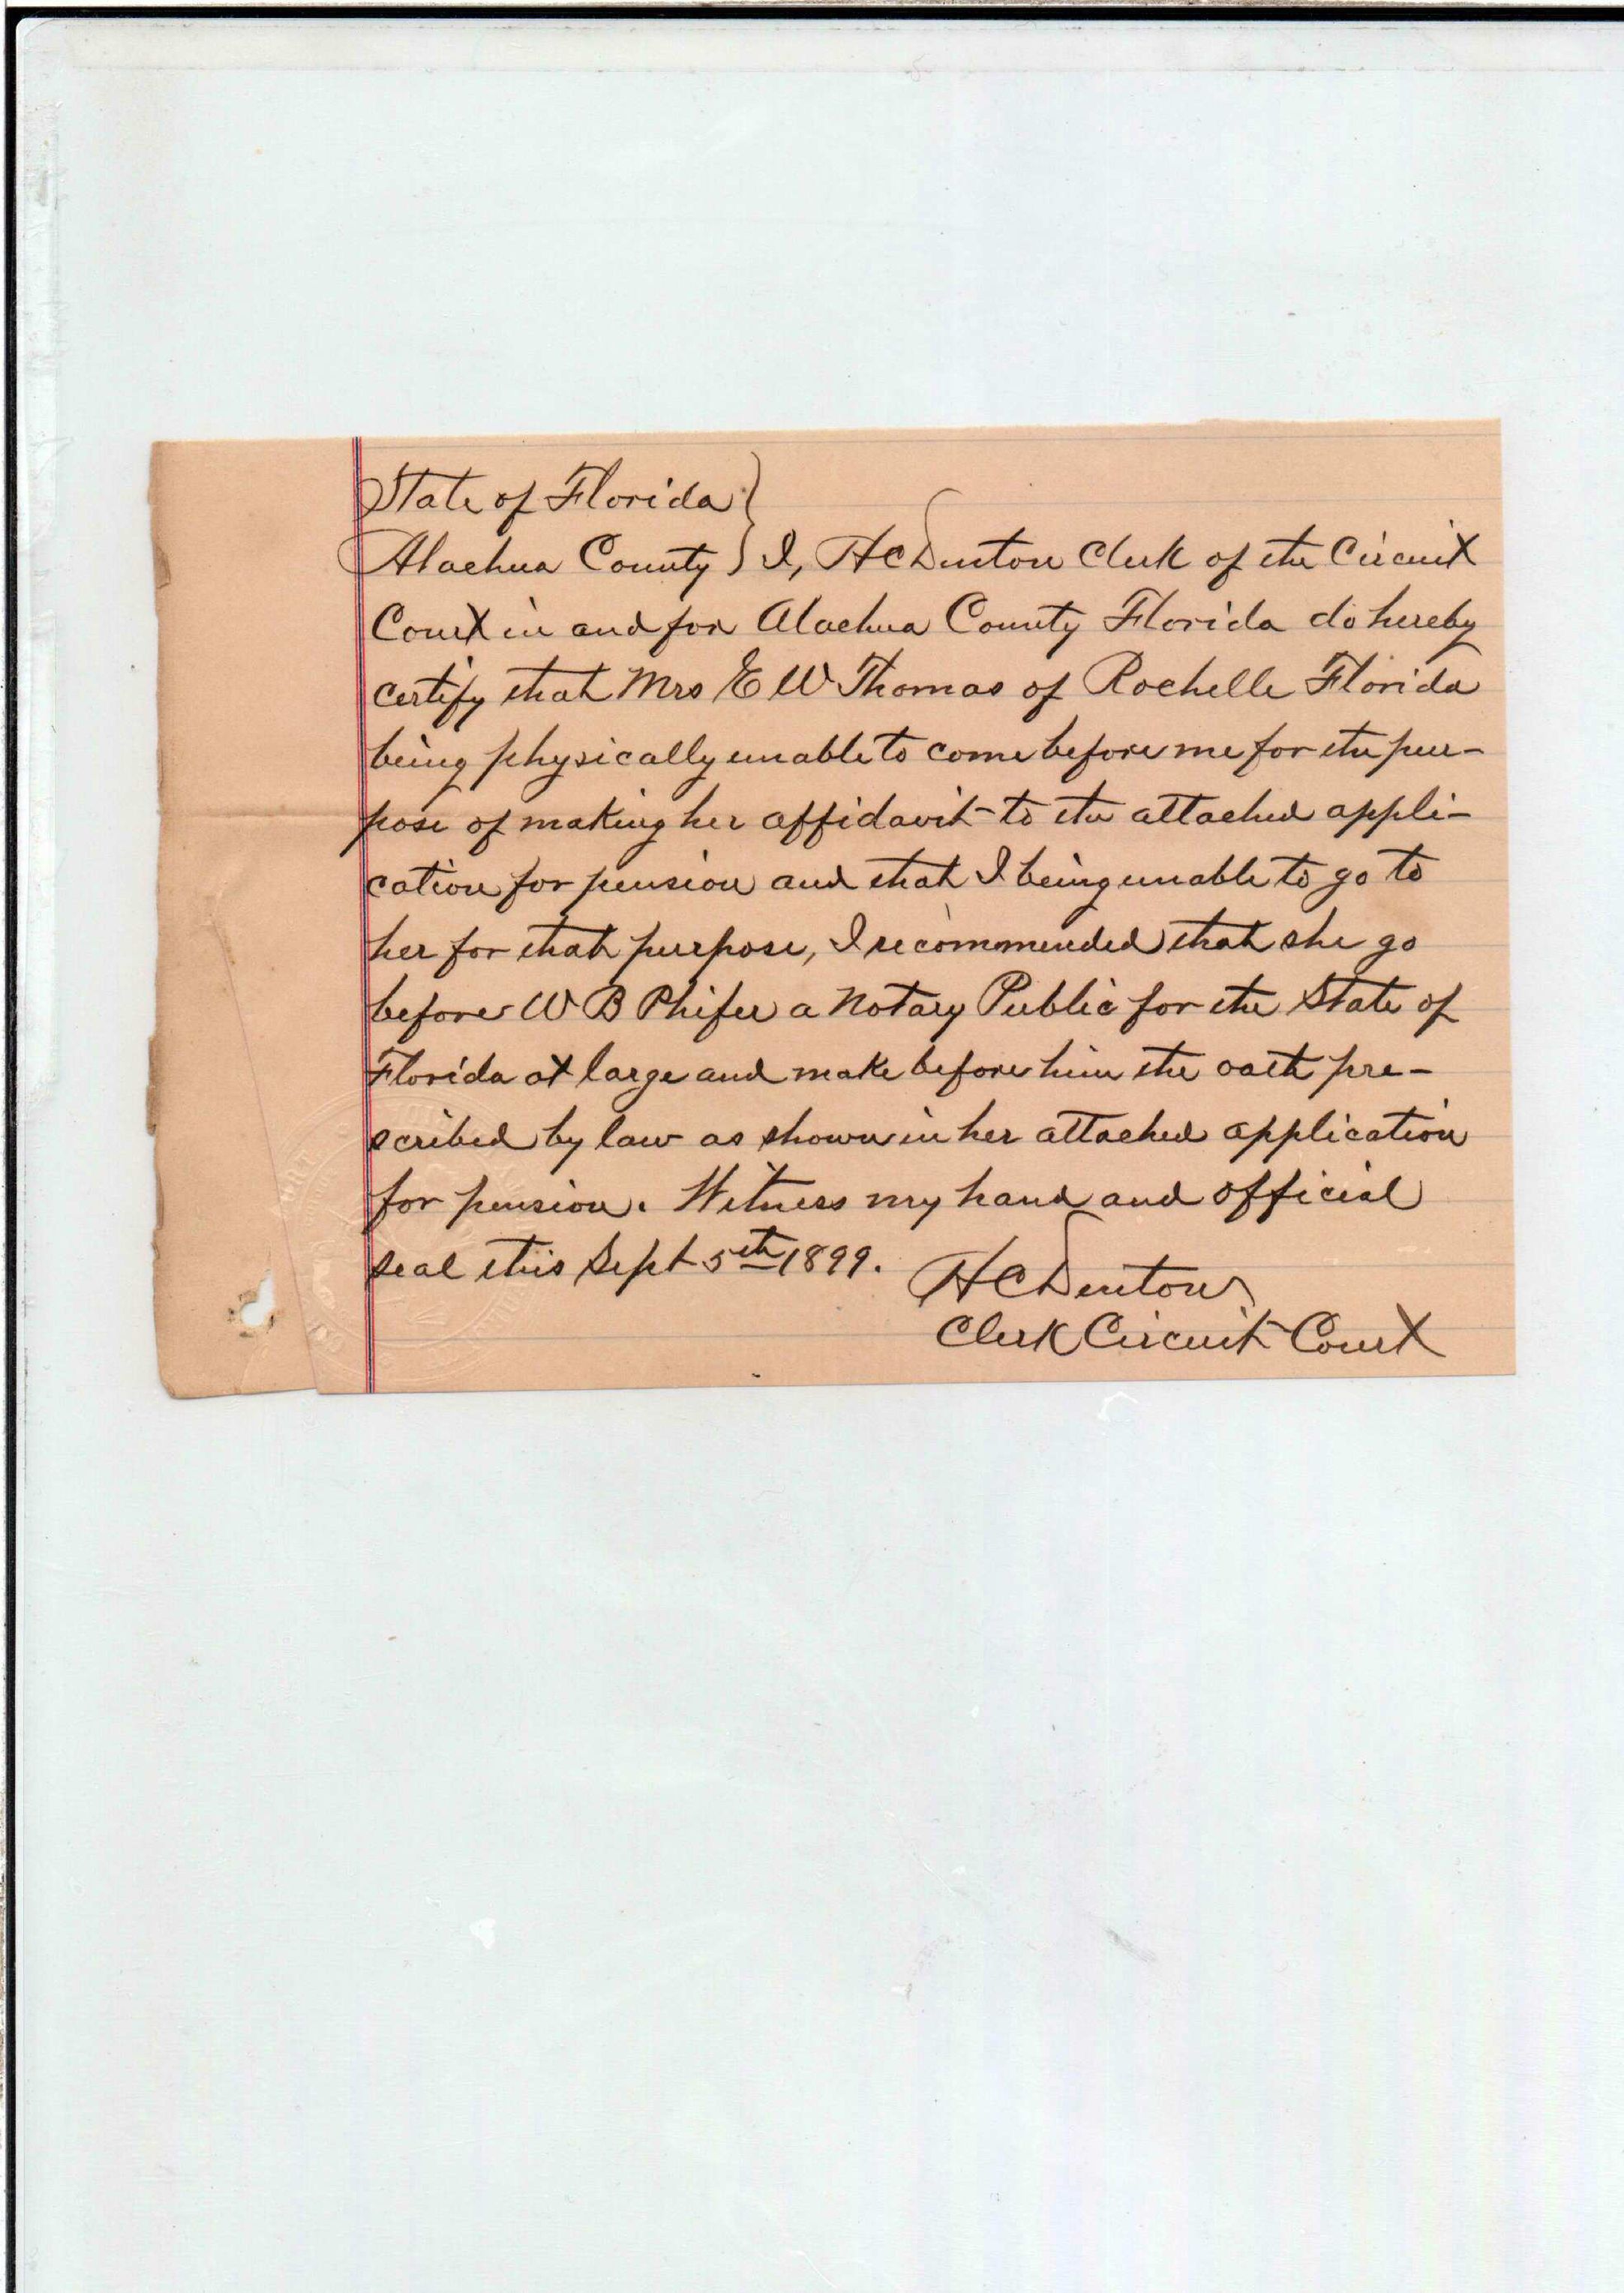 State of Florida }
Alachua County } I, H C Denton Clerk of the Circuit
Court in and for Alachua County Florida do hereby
certify that Mrs E W Thomas of Rochelle Florida
being physically unable to come before me for the pur-
pose of making her affidavit to the attached appli-
cation for pension and that I being unable to go to
her for that purpose, I recommended that she go
before W B Phifer a Notary Public for the State of
Florida at large and make before him the oath pre-
scribed by law as shown in her attached application
for pension. Witness my hand and official
seal this Sept 5th 1899.
H C Denton
Clerk Circuit Court